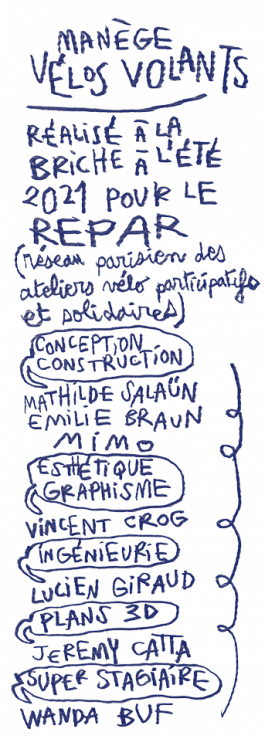 MANÈGE
VÉLOS VOLANTS
RÉALISÉ À LA
BRICHE À L'ÉTÉ
2021 POUR LE
REPAR
(réseau parisien des
ateliers vélo participatifs
et solidaires)
CONCEPTION
CONSTRUCTION
MATHILDE SALAÜN
EMILIE BRAUN
MIMO
ESTHÉTIQUE
GRAPHISME
VINCENT CROG
INGÉNIEURIE
LUCIEN GIRAUD
PLANS 3D
JEREMY CATTA
SUPER STAGIAIRE
WANDA BUF